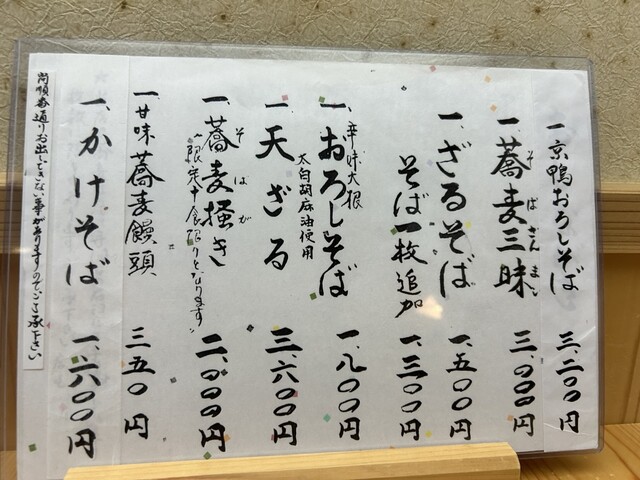 一 京鴨おろしそば 三、二〇〇円
一、蕎麦三昧 三、〇〇〇円
そばざんまい
一、ざるそば 一、五〇〇円
そば一枚追加 一、三〇〇円
辛味大根
一、おろしそば 一、八〇〇円
一、天ざる 三、六〇〇円
太白胡麻油使用
一、蕎麦掻き 二、〇〇〇円
そばがき
限定十食限りとなります
一、甘味 蕎麦饅頭 三五〇円
一、かけそば 一、六〇〇円
尚順番通りお出しできない事がありますのでご了承下さい